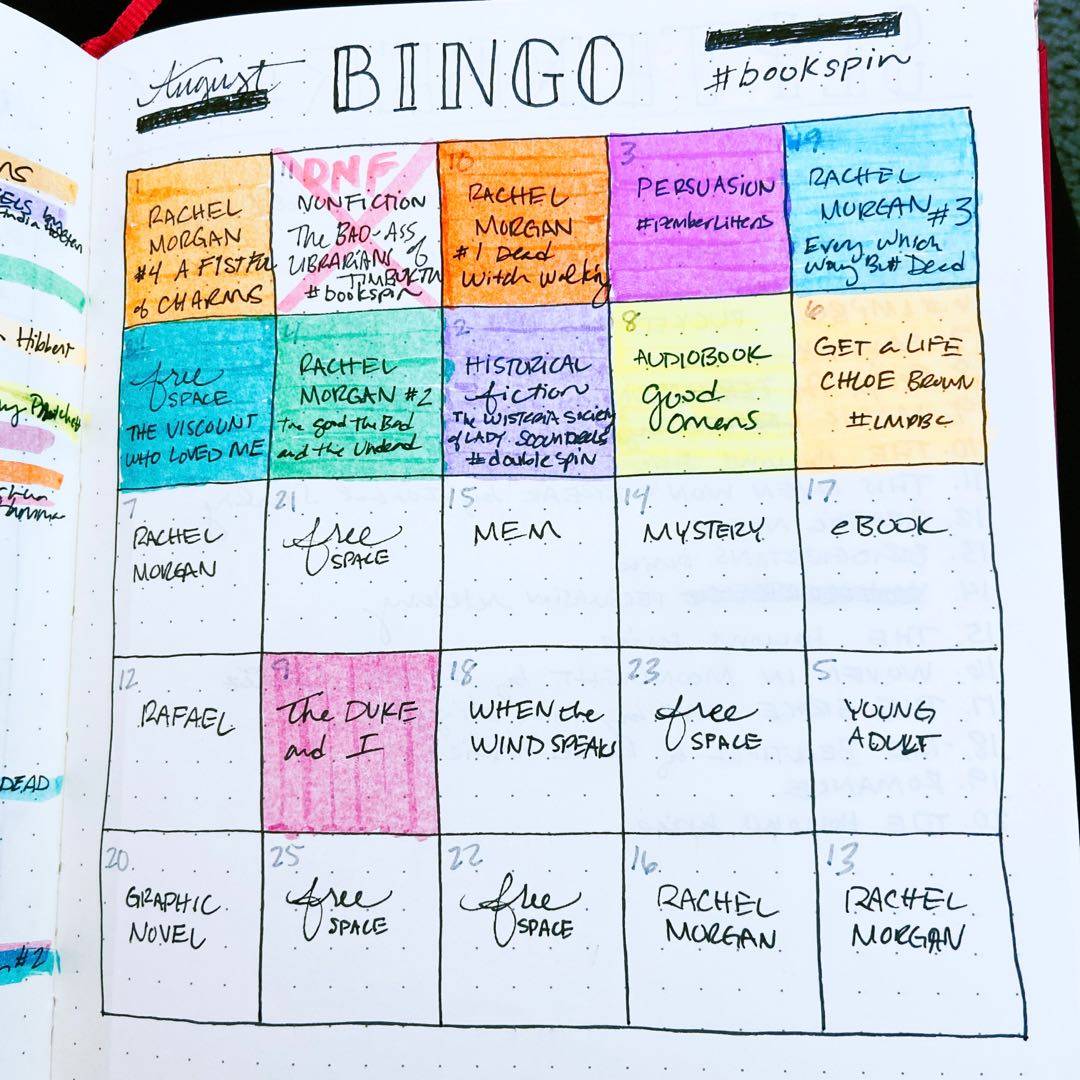 August
BINGO
#bookspin
1
RACHEL
MORGAN
#4 A FISTFUL
of CHARMS
11
DNF
NONFICTION
The BAD-ASS
LIBRARIANS of
TIMBUKTU
#bookspin
10
RACHEL
MORGAN
#1 Dead
Witch Walking
3
PERSUASION
#PemberLittens
19
RACHEL
MORGAN #3
Every Which
Way But Dead
free
SPACE
THE VISCOUNT
WHO LOVED ME
4
RACHEL
MORGAN #2
the Good The Bad
and the Undead
2
HISTORICAL
fiction
The WISTERIA SOCIETY
of LADY SCOUNDRELS
#doublespin
8
AUDIOBOOK
Good
Omens
6
GET a LIFE
CHLOE BROWN
#LMPBC
7
RACHEL
MORGAN
21
free
SPACE
15
MEM
14
MYSTERY
17
eBOOK
12
RAFAEL
9
The DUKE
and I
18
WHEN the
WIND SPEAKS
23
free
SPACE
5
YOUNG
ADULT
20.
GRAPHIC
NOVEL
25
free
SPACE
22
free
SPACE
16
RACHEL
MORGAN
13
RACHEL
MORGAN
Hibbert
DEAD
#2